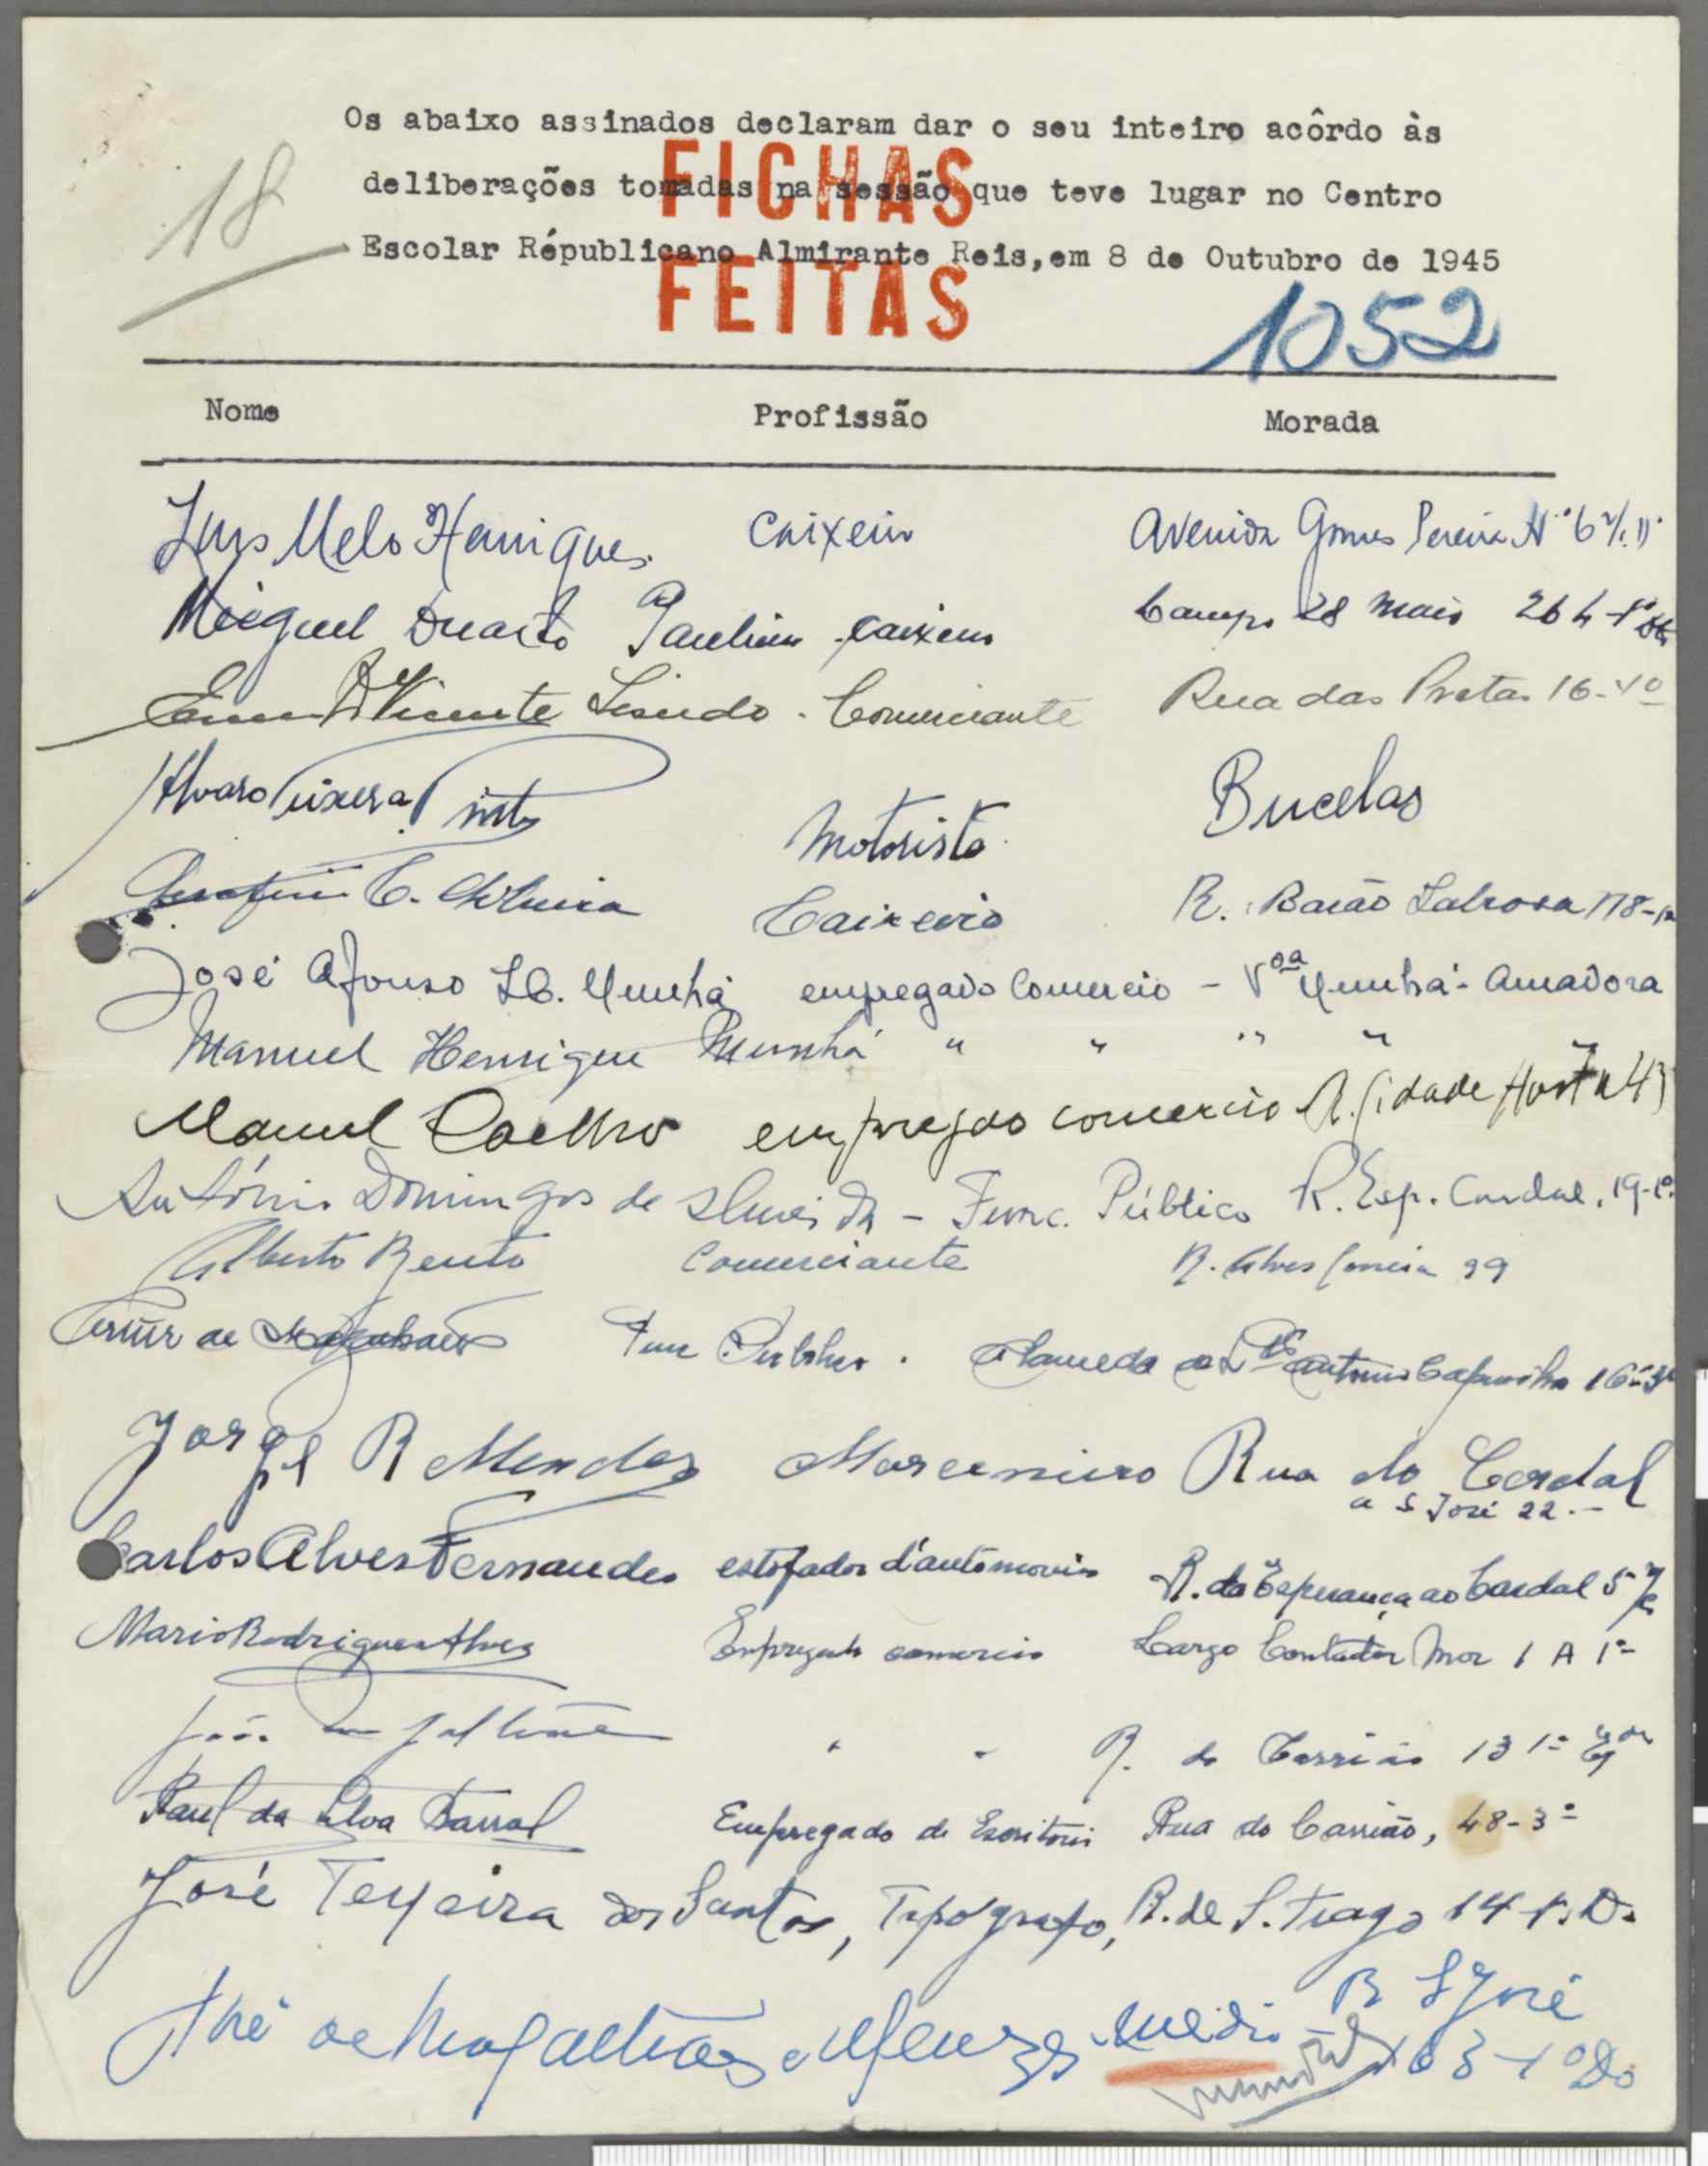 18
Os abaixo assinados declaram dar o seu inteiro acôrdo às
deliberações tomadas na sessão que teve lugar no Centro
Escolar Républicano Almirante Reis, em 8 de Outubro de 1945
FICHAS
FEITAS
1052
Nome Profissão Morada
Luis Melo Henriques. Caixeiro Avenida Gomes Pereira Nº 6
Miguel Duarte Paulino caixeiro Campo 28 Maio 26
Vicente Lisudo - Comerciante Rua das Pretas 16-4º
Alvaro Teixera Pinto Motorista Bucelas
Serafim C. Oliveira Caixeiro R. Barão Sabrosa 178-
José Afonso H. Munhá empregado Comercio - Vª Munhá - Amadora
Manuel Henrique Munhá " " " " "
Manuel Coelho empregado comercio R. Cidade Horta 43
António Domingos de Almeida - Func. Público R. Esp. Cardal, 19-1º
Alberto Bento Comerciante R. Alves Correia 99
Artur de Magalhaes Func Publico. Alameda de Stº Antonio Capuchos 16-3º
Jorge R Mendes Marceneiro Rua do Cardal
a S José 22.-
Carlos Alves Fernandes estofador d'automoveis R. da Esperança ao Cardal 5
Mario Rodrigues Alves Empregado comercio Largo Contador Mor 1 A 1º
João " " R. do Carrião 13 1º Esq
Raul da Silva Barral Empregado de Escritori Rua do Carrião, 48-3º
José Teixeira dos Santos, Tipógrafo, R. de S. Tiago 14 r. D.
José de Magalhães Menezes Médico R S José
163-1º Dº